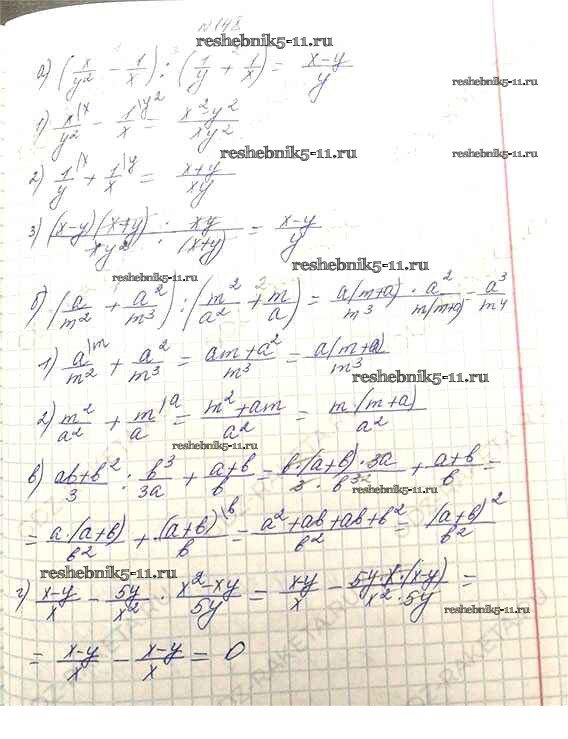 № 148
reshebnik5-11.ru
а) (x/y² - 1/x) : (1/y + 1/x) = (x-y)/y
reshebnik5-11.ru
1) x|x/y² - 1|y²/x = (x²-y²)/(xy²)
reshebnik5-11.ru reshebnik5-11.ru
2) 1|x/y + 1|y/x = (x+y)/(xy)
3) (x-y)(x+y)/(xy²) : xy/(x+y) = (x-y)/y
reshebnik5-11.ru reshebnik5-11.ru
б) (a/m² + a²/m³) : (m²/a² + m/a) = a(m+a)/m³ · a²/(m(m+a)) = a³/m⁴
1) a|m/m² + a²/m³ = (am+a²)/m³ = a(m+a)/m³
reshebnik5-11.ru
2) m²/a² + m|a/a = (m²+am)/a² = m(m+a)/a²
reshebnik5-11.ru
в) (ab+b²)/3 : b³/3a + (a+b)/b = b·(a+b)·3a/(3·b³) + (a+b)/b =
reshebnik5-11.ru
= a·(a+b)/b² + (a+b)|b/b = (a²+ab+ab+b²)/b² = (a+b)²/b²
reshebnik5-11.ru
г) (x-y)/x - 5y/x² · (x²-xy)/5y = (x-y)/x - 5y·x·(x-y)/(x²·5y) =
reshebnik5-11.ru
= (x-y)/x - (x-y)/x = 0
reshebnik5-11.ru reshebnik5-11.ru